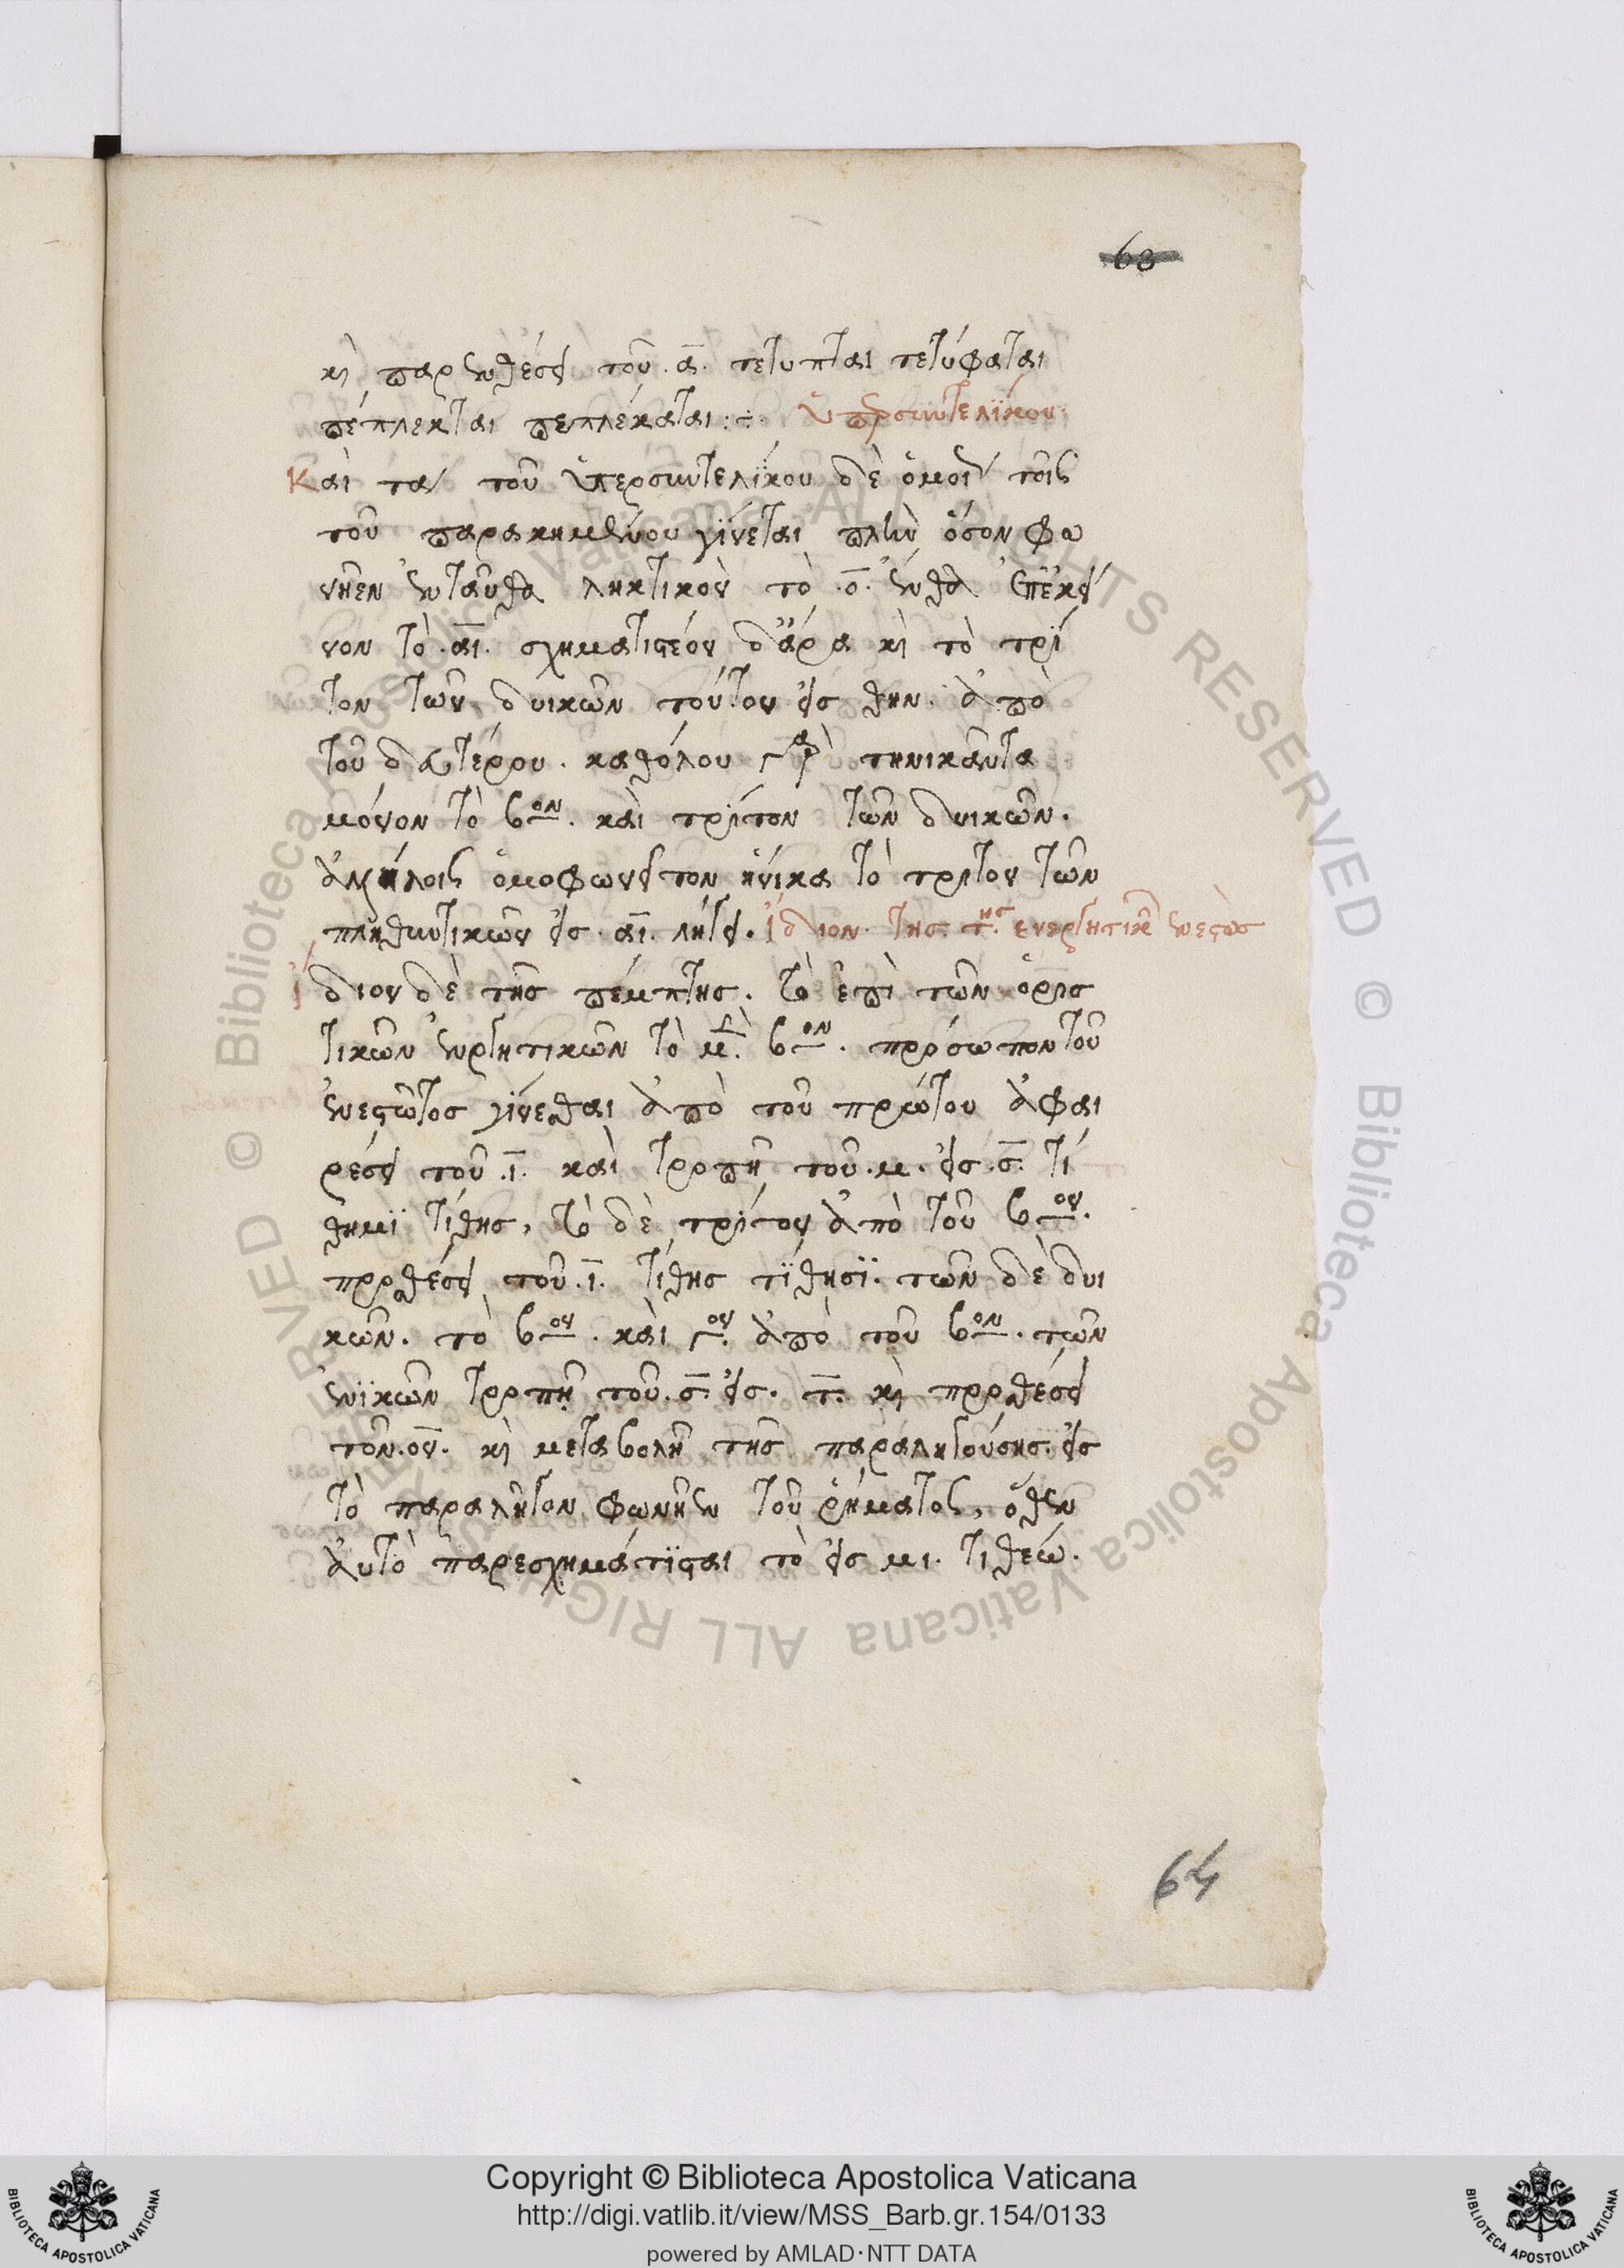 63
κὶ παρενθέσει τοῦ .α. τέτυπται τετύφαται
πέπλεκται πεπλέκαται :÷ Ὑπερσυντελίκου
Καὶ τὰ τοῦ ὑπερσυντελίκου δὲ ὁμοί τοῖς
τοῦ παρακημένου γίνεται πλὴν ὅσον φω
νῆεν ἐνταῦθα ληκτικὸν τὸ .ο. ἔνθα ἐπ' ἐκεί
νον τὸ .αι. σχηματιστέον δ' ἄρα κὶ τὸ τρί
τον τῶν δυικῶν τούτον εἰς θην. ἀπὸ
τοῦ δευτέρου. καθόλου γὰρ τηνικαῦτα
μόνον τὸ βον. καὶ τρίτον τῶν δυικῶν.
ἀλλήλοις ὁμοφωνεῖτον ἡνίκα τὸ τρίτον τῶν
πληθυντικῶν εἰς .αι. λήγει. Ἴδιον τῆς ε̄ης ἐνεργητικ ἐνεστὼς
Ἴδιον δὲ τῆς πέμπτης. τὸ ἐπὶ τῶν ὁρισ
τικῶν ἐνεργητικῶν τὸ μὲν βον. πρόσωπον τοῦ
ἐνεστῶτος γίνεσθαι ἀπὸ τοῦ πρώτου ἀφαι
ρέσει τοῦ .ι. καὶ τροπῇ τοῦ .μ. εἰς .σ. τί
θημι τίθης, τὸ δὲ τρίτον ἀπὸ τοῦ βου.
προσθέσει τοῦ .ι. τίθης τίθησι. τῶν δὲ δυι
κῶν. τὸ βον. καὶ γον. ἀπὸ τοῦ βου. τῶν
ἑνικῶν τροπῇ τοῦ .σ. εἰς .τ. κὶ προσθέσει
τοῦ .ον. κὶ μεταβολῇ τῆς παραληγούσης. εἰς
τὸ παραλῆγον φωνῆεν τοῦ ῥήματος, ὅθεν
αὐτὸ παρεσχημάτισται τὸ εἰς μι. τιθέω.
64
Copyright © Biblioteca Apostolica Vaticana
http://digi.vatlib.it/view/MSS_Barb.gr.154/0133
powered by AMLAD·NTT DATA
BIBLIOTECA APOSTOLICA VATICANA
BIBLIOTECA APOSTOLICA VATICANA
© Biblioteca Apostolica Vaticana ALL RIGHTS RESERVED © Biblioteca Apostolica Vaticana ALL RIGHTS RESERVED